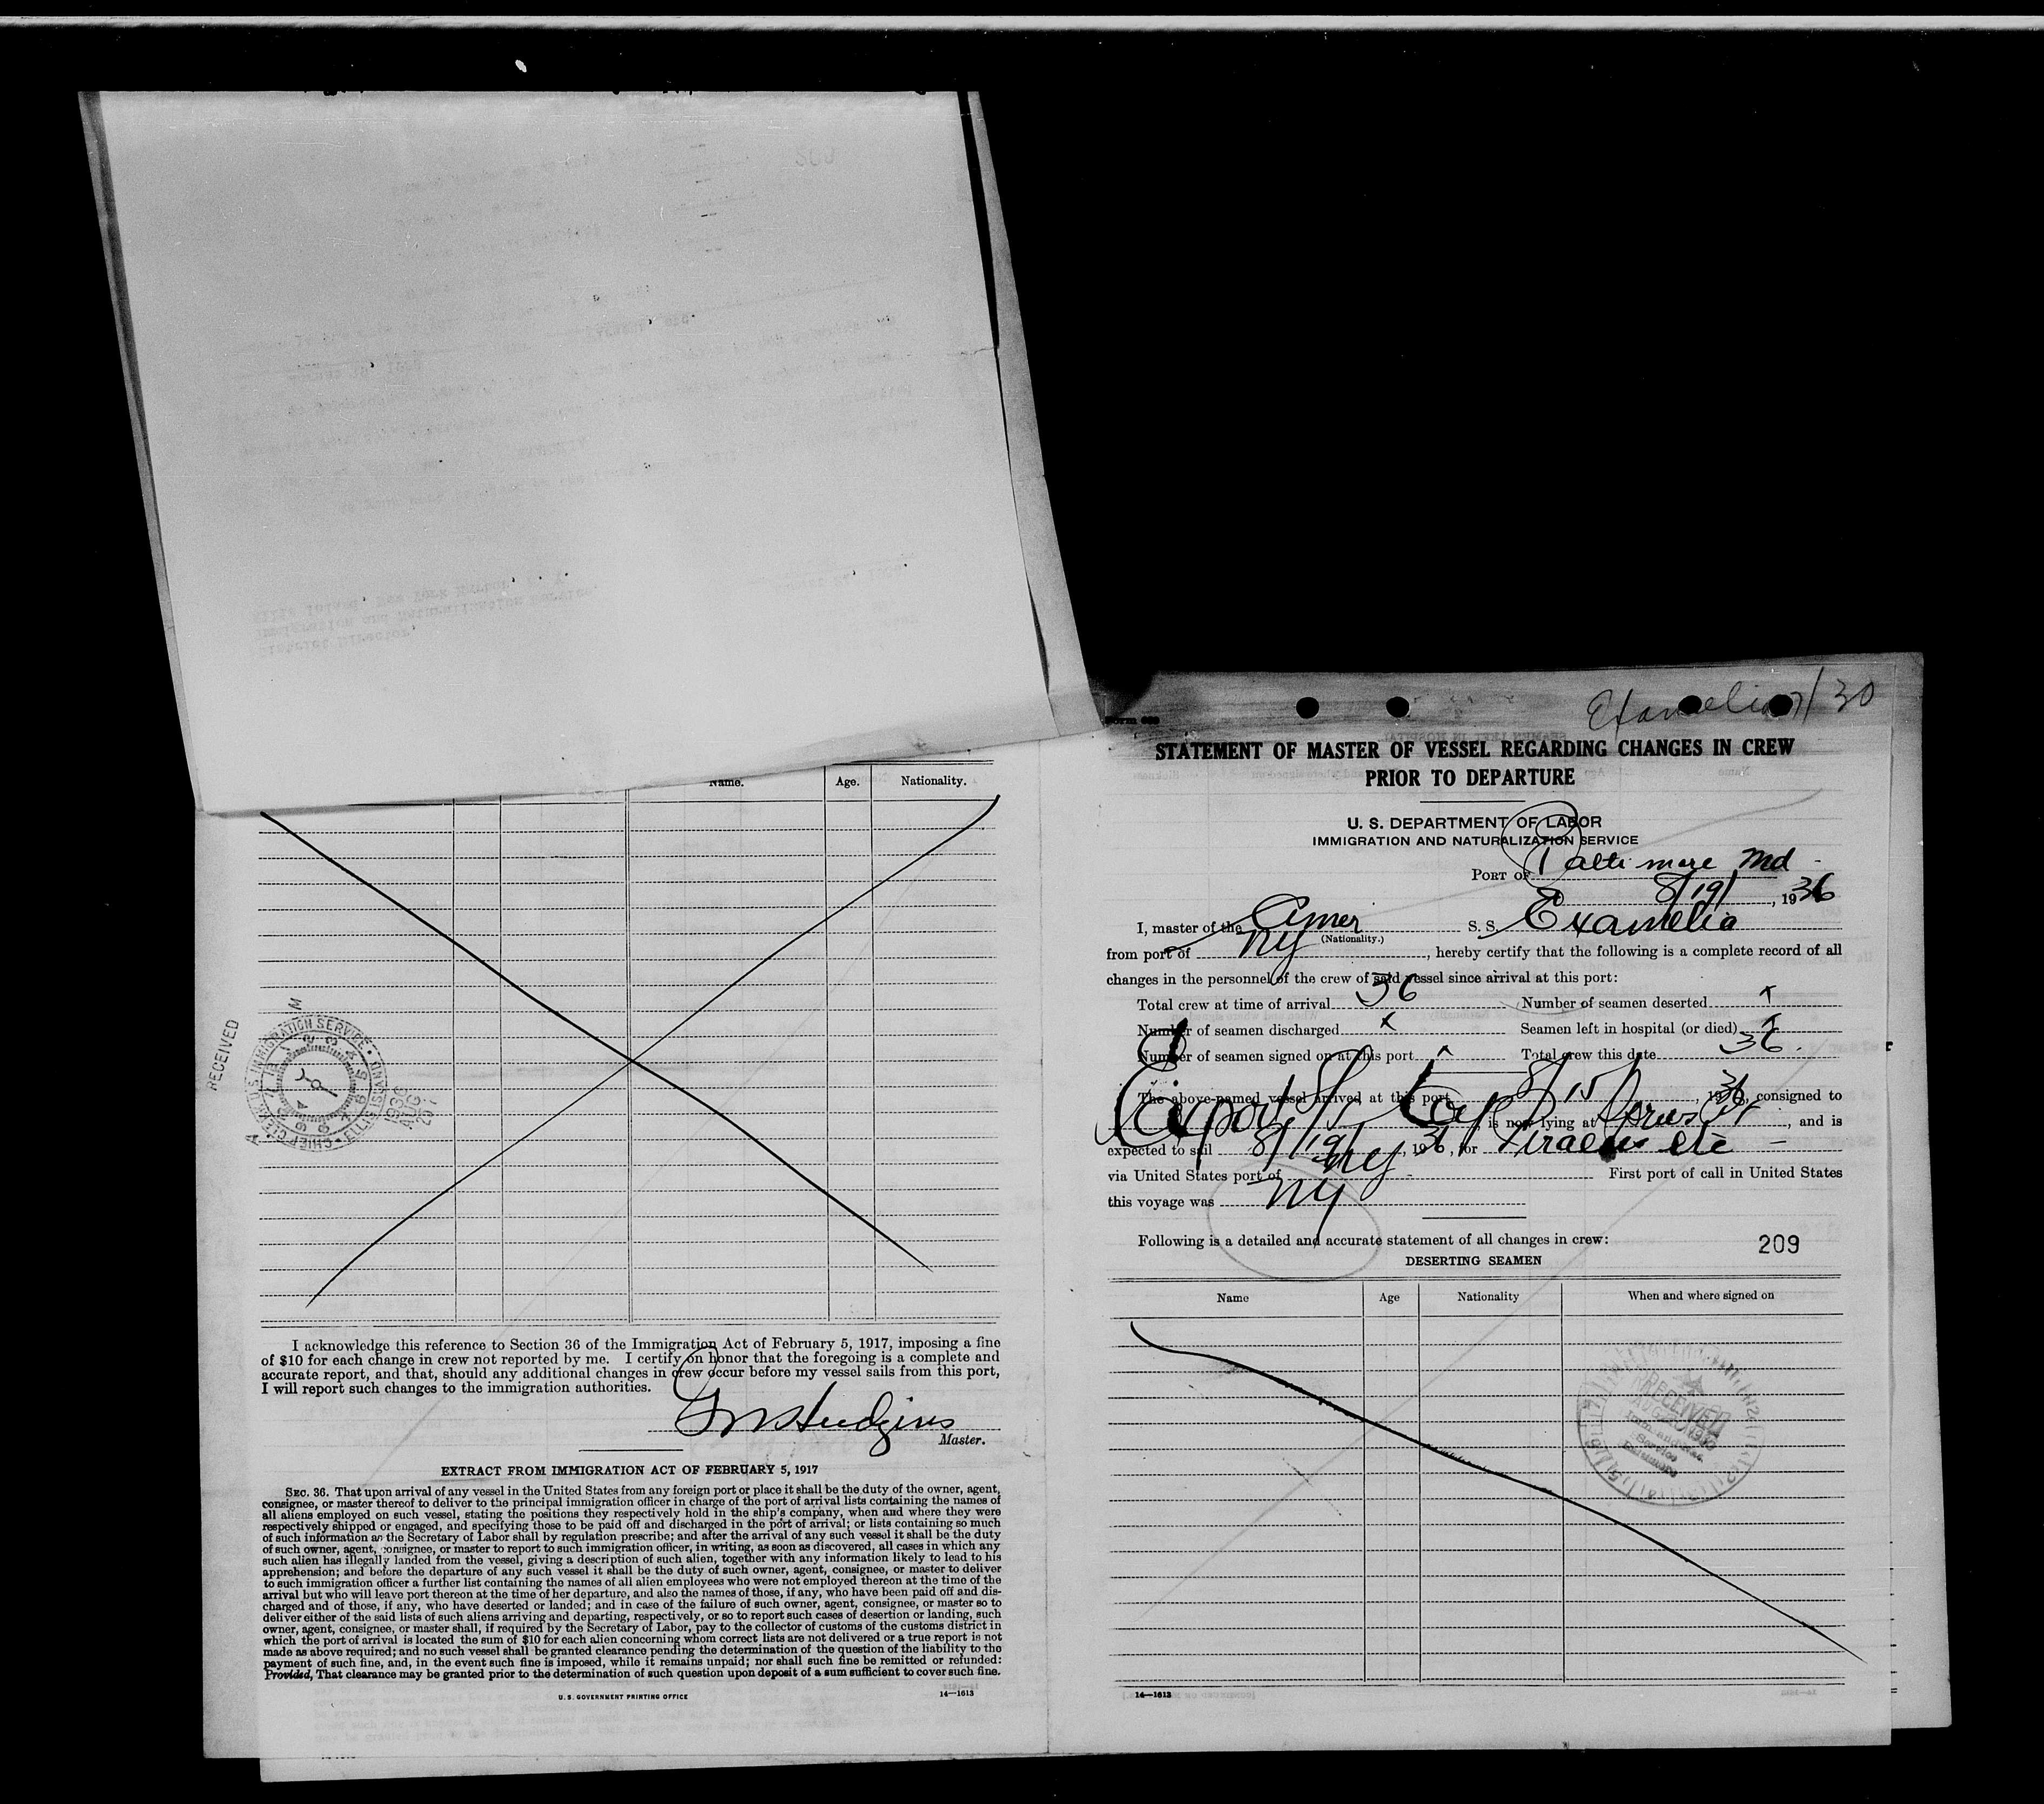 Name. Age. Nationality.
RECEIVED
CHIEF CLERK, U. S. IMMIGRATION SERVICE • ELLIS ISLAND
1936
AUG
I acknowledge this reference to Section 36 of the Immigration Act of February 5, 1917, imposing a fine
of $10 for each change in crew not reported by me. I certify on honor that the foregoing is a complete and
accurate report, and that, should any additional changes in crew occur before my vessel sails from this port,
I will report such changes to the immigration authorities.
Hudgins
Master.
EXTRACT FROM IMMIGRATION ACT OF FEBRUARY 5, 1917
SEC. 36. That upon arrival of any vessel in the United States from any foreign port or place it shall be the duty of the owner, agent,
consignee, or master thereof to deliver to the principal immigration officer in charge of the port of arrival lists containing the names of
all aliens employed on such vessel, stating the positions they respectively hold in the ship's company, when and where they were
respectively shipped or engaged, and specifying those to be paid off and discharged in the port of arrival; or lists containing so much
of such information as the Secretary of Labor shall by regulation prescribe; and after the arrival of any such vessel it shall be the duty
of such owner, agent, consignee, or master to report to such immigration officer, in writing, as soon as discovered, all cases in which any
such alien has illegally landed from the vessel, giving a description of such alien, together with any information likely to lead to his
apprehension; and before the departure of any such vessel it shall be the duty of such owner, agent, consignee, or master to deliver
to such immigration officer a further list containing the names of all alien employees who were not employed thereon at the time of the
arrival but who will leave port thereon at the time of her departure, and also the names of those, if any, who have been paid off and dis-
charged and of those, if any, who have deserted or landed; and in case of the failure of such owner, agent, consignee, or master so to
deliver either of the said lists of such aliens arriving and departing, respectively, or so to report such cases of desertion or landing, such
owner, agent, consignee, or master shall, if required by the Secretary of Labor, pay to the collector of customs of the customs district in
which the port of arrival is located the sum of $10 for each alien concerning whom correct lists are not delivered or a true report is not
made as above required; and no such vessel shall be granted clearance pending the determination of the question of the liability to the
payment of such fine, and, in the event such fine is imposed, while it remains unpaid; nor shall such fine be remitted or refunded:
Provided, That clearance may be granted prior to the determination of such question upon deposit of a sum sufficient to cover such fine.
U. S. GOVERNMENT PRINTING OFFICE 14—1613
Examelia 7/30
STATEMENT OF MASTER OF VESSEL REGARDING CHANGES IN CREW
PRIOR TO DEPARTURE
U. S. DEPARTMENT OF LABOR
IMMIGRATION AND NATURALIZATION SERVICE
PORT OF Baltimore Md
8/19/, 1936
I, master of the Amer S. S. Examelia
(Nationality.)
from port of NY, hereby certify that the following is a complete record of all
changes in the personnel of the crew of said vessel since arrival at this port:
Total crew at time of arrival 36 Number of seamen deserted x
Number of seamen discharged x Seamen left in hospital (or died) x
Number of seamen signed on at this port x Total crew this date 36.
The above-named vessel arrived at this port 8/15/, 1936, consigned to
Export is now lying at, and is
expected to sail 8/19/, 1936, for Piraeus etc
via United States port of NY First port of call in United States
this voyage was NY
Following is a detailed and accurate statement of all changes in crew:
209
DESERTING SEAMEN
Name Age Nationality When and where signed on
RECEIVED
AUG
Service
Baltimore
14—1613